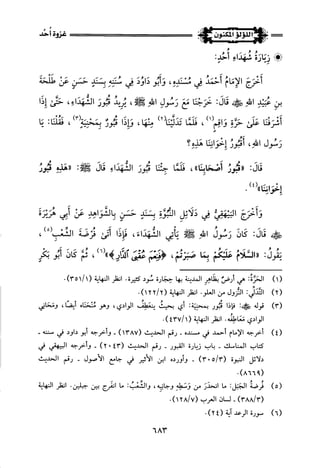 اللؤلؤ المكنون
غزوة أحد
زِيَارَةُ شُهَدَاءِ أُحُدٍ:
أَخْرَجَ الإِمَامُ أَحْمَدُ فِي مُسْنَدِهِ، وَأَبُو دَاوُدَ فِي سُنَنِهِ بِسَنَدٍ حَسَنٍ عَنْ طَلْحَةَ
بنِ عُبَيْدِ اللهِ ﷺ قَالَ: خَرَجْنَا مَعَ رَسُولِ اللهِ ﷺ، يُرِيدُ قُبُورَ الشُّهَدَاءِ، حَتَّى إِذَا
أَشْرَفْنَا عَلَى حَرَّةِ وَاقِمٍ(١)، فَلَمَّا تَدَلَّيْنَا(٢) مِنْهَا، وَإِذَا قُبُورٌ بِمَحْنِيَةٍ(٣)، فَقُلْنَا: يَا
رَسُولَ اللهِ، أَقُبُورُ إِخْوَانِنَا هَذِهِ؟
قَالَ: «قُبُورُ أَصْحَابِنَا»، فَلَمَّا جِئْنَا قُبُورَ الشُّهَدَاءِ قَالَ ﷺ: «هَذِهِ قُبُورُ
إِخْوَانِنَا»(٤).
وَأَخْرَجَ البَيْهَقِيُّ فِي دَلَائِلِ النُّبُوَّةِ بِسَنَدٍ حَسَنٍ بِالشَّوَاهِدِ عَنْ أَبِي هُرَيْرَةَ
قَالَ: كَانَ رَسُولُ اللهِ ﷺ يَأْتِي الشُّهَدَاءَ، فَإِذَا أَتَى فُرْضَةَ الشِّعْبِ(٥)،
يَقُولُ: «السَّلَامُ عَلَيْكُمْ بِمَا صَبَرْتُمْ، ﴿فَنِعْمَ عُقْبَى الدَّارِ﴾»(٦)، ثُمَّ كَانَ أَبُو بَكْرٍ
(١) الحَرَّةُ: هي أرضٌ بظَاهِرِ المدينة بها حِجارة سُود كثيرة. انظر النهاية (٣٥١/١).
(٢) التَّدَلِّي: النزول من العلو. انظر النهاية (١٢٢/٢).
(٣) قوله ﷺ: فإذا قُبور بمحنية: أي بحيث ينعطِفُ الوادي، وهو مُنحَنَاه أيضًا، ومحاني
الوادي مَعَاطِفُه. انظر النهاية (٤٣٧/١).
(٤) أخرجه الإمام أحمد في مسنده - رقم الحديث (١٣٨٧) - وأخرجه أبو داود في سننه -
كتاب المناسك - باب زيارة القبور - رقم الحديث (٢٠٤٣) - وأخرجه البيهقي في
دلائل النبوة (٣٠٥/٣) - وأورده ابن الأثير في جامع الأصول - رقم الحديث
(٨٦٦٩)
(٥) فُرضةُ الجَبَلِ: ما انحدَرَ من وَسَطِهِ وجانِبِهِ، والشِّعْبُ: ما انفرج بين جبلين. انظر النهاية
(٣٨٨/٣) - لسان العرب (١٢٨/٧).
(٦) سورة الرعد آية (٢٤).
٦٨٣